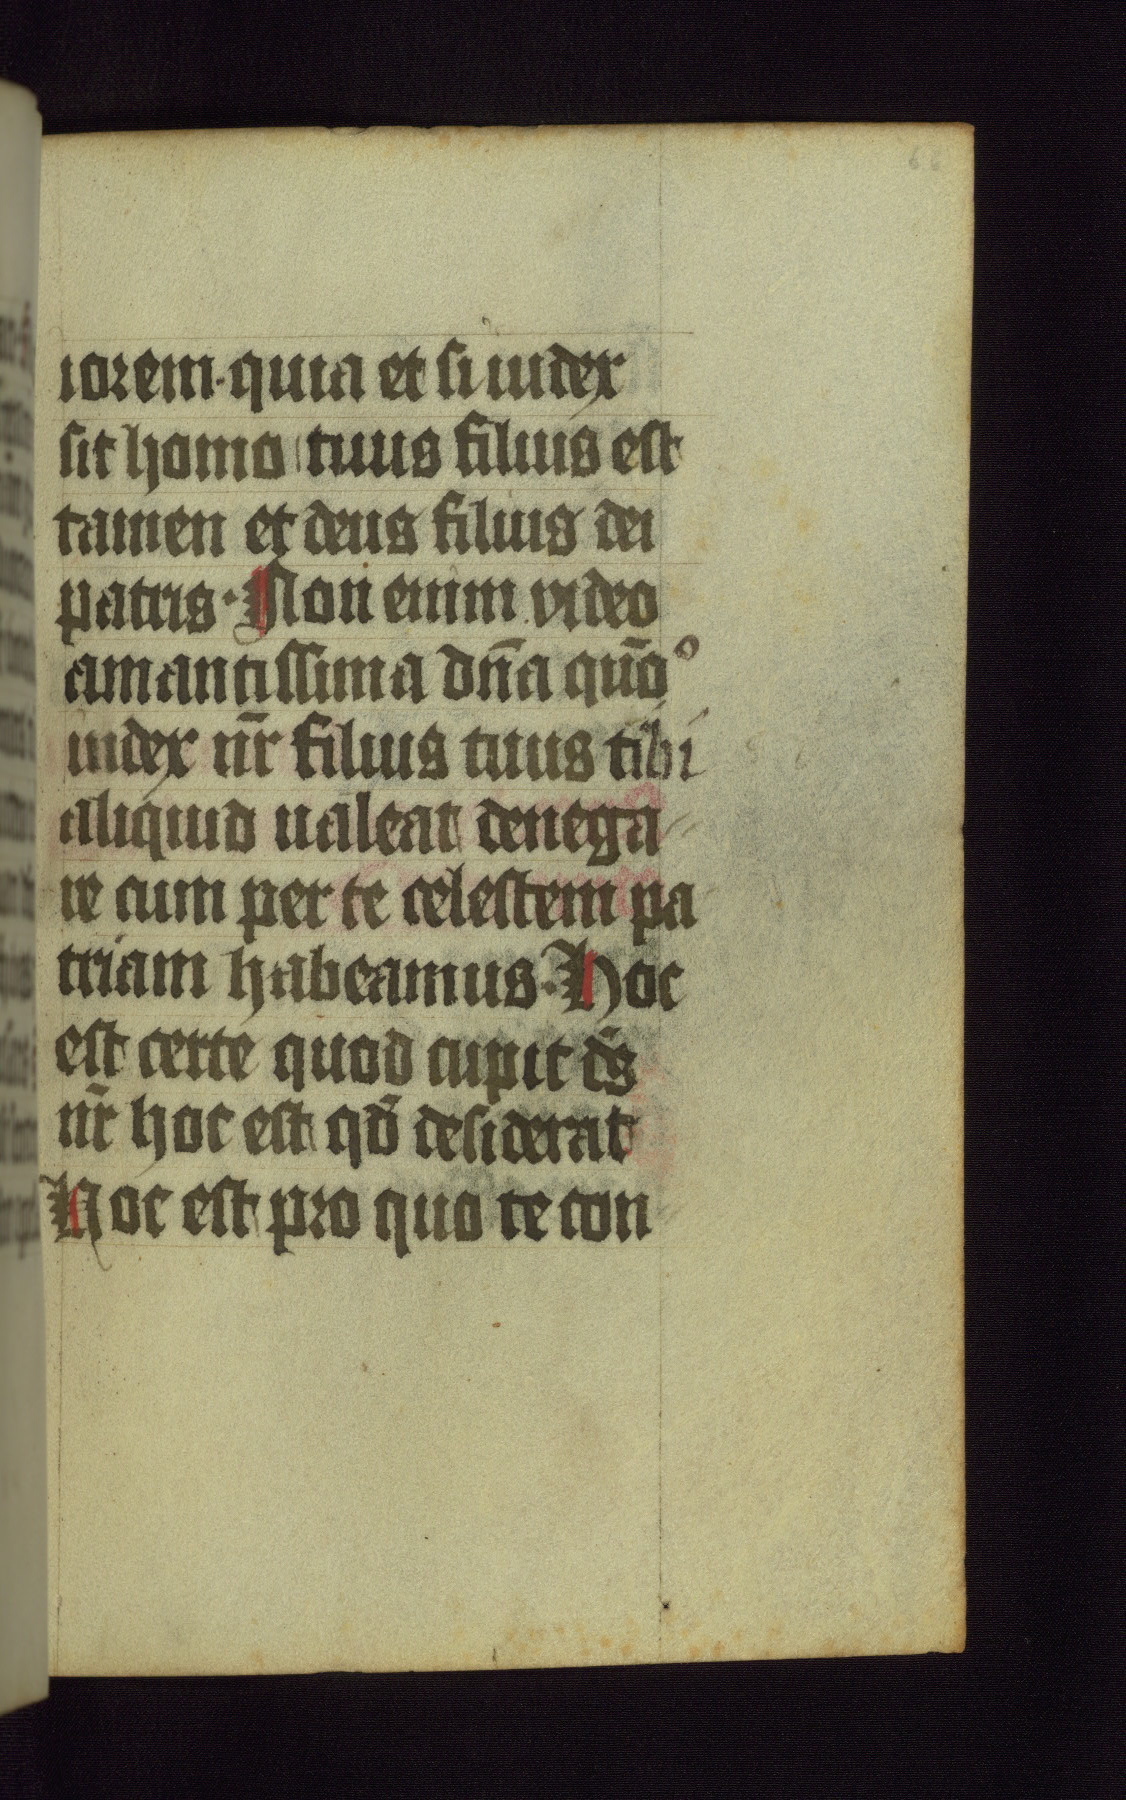 iorem. quia et si iudex
sit homo tuus filius est
tamen et deus filius dei
patris. Non enim video
amantissima dn̄a quō°
iudex nr̄ filius tuus tibi
aliquid ualeat denega
re cum per te celestem pa
triam habeamus. Hoc
est certe quod cupit ds̄
nr̄ hoc est qd̄ desiderat
Hoc est pro quo te con